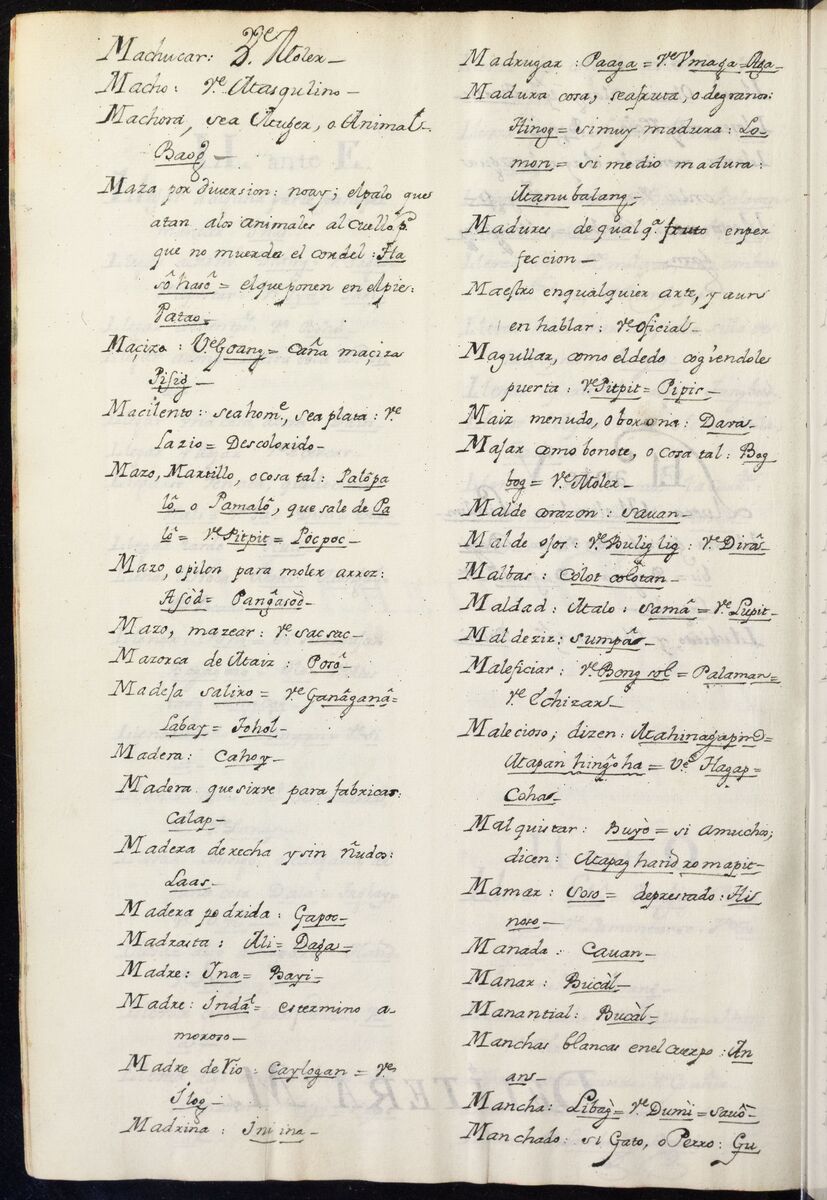 Machucar: Vᵉ Moler_
Macho: vᵉ Masqulino_
Machora, sea Muger, o Animal.
Baog_
Maza por diversion: noay; elpalo que
atan alos animales al cuello pᵃ
que no muerda el cordel: Ha
sô hasô= elqueponen en elpie:
Patao_
Maçizo: Vᵉ Goang= caña maçiza
Pisig_
Macilento: sea homᵉ, sea plata: vᵉ
Lazio= Descolorido_
Mazo, Martillo, o cosa tal: Palôpa
lô_ o Pamalô, que sale de Pa
lô= vᵉ Pitpit= Pocpoc_
Mazo, o pilon para moler arroz:
Asòd= Pangasòò_
Mazo, mazear: vᵉ sacsac_
Mazorca de Maiz: Posô_
Madeja saliro= vᵉ Ganâganâ=
Labay= Tohol_
Madera: Cahoy_
Madera que sirve para fabricas:
Calap_
Madera derecha y sin ñudos:
Laas_
Madera podrida: Gapoc_
Madrasta: Ali= Daga=
Madre: Ina= Bayi_
Madre: Indâ= es termino a-
moroso_
Madre de rio: Caylogan= vᵉ
Ilog_
Madrina: Iniina_
Madrugar: Paaga= vᵉ Vmaga= Aga_
Madura cosa, sea fruta, o degranos:
Hinog= si muy madura: Lo-
mon_= si medio madura:
Manubalang_
Madures de qualqᵃ fruto enper
feccion_
Maestro enqualquier arte, y aun
en hablar: vᵉ oficial_
Magullar, como eldedo cogiendole
puerta: vᵉ Pitpit= Pipis_
Maiz menudo, o borona: Dara_
Majar como bonote, o cosa tal: Bog
bog= vᵉ Moler_
Mal de corazon: sauan_
Mal de ojos: vᵉ Buliglig: vᵉ Dirâ_
Malbas: Colot colotan_
Maldad: Malo: samâ= vᵉ Lupit_
Maldezir: sumpâ_
Maleficiar: vᵉ Bongsol= Palaman=
vᵉ Echizar_
Malecioso; dizen: Mahinagapno=
Mapanhingoha= vᵉ Hagap=
Coha_
Malquistar: Buyò= si amuchos;
dicen: Mapaghatid romapit_
Mamar: soso= deprestado: His
noso_
Manada: Cauan_
Manar: Bucàl_
Manantial: Bucàl_
Manchas blancas enel cuerpo: An
an_
Mancha: Libag= vᵉ Dumi= sauô_
Manchado: si Gato, o Perro: Gu